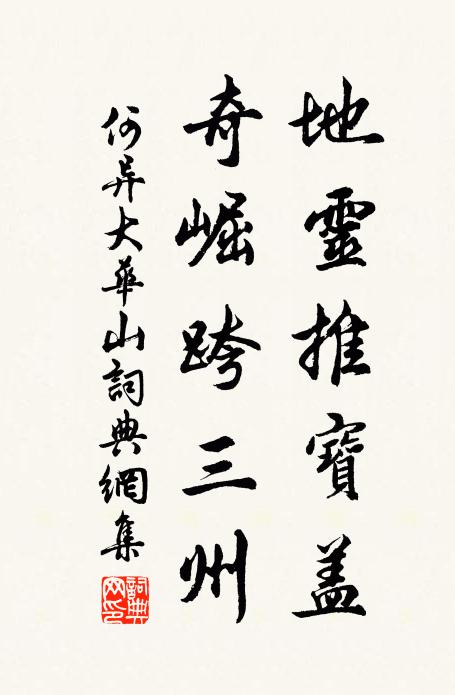 地靈推寶蓋
奇崛跨三州
何异大華山詞典網集
詞典網印